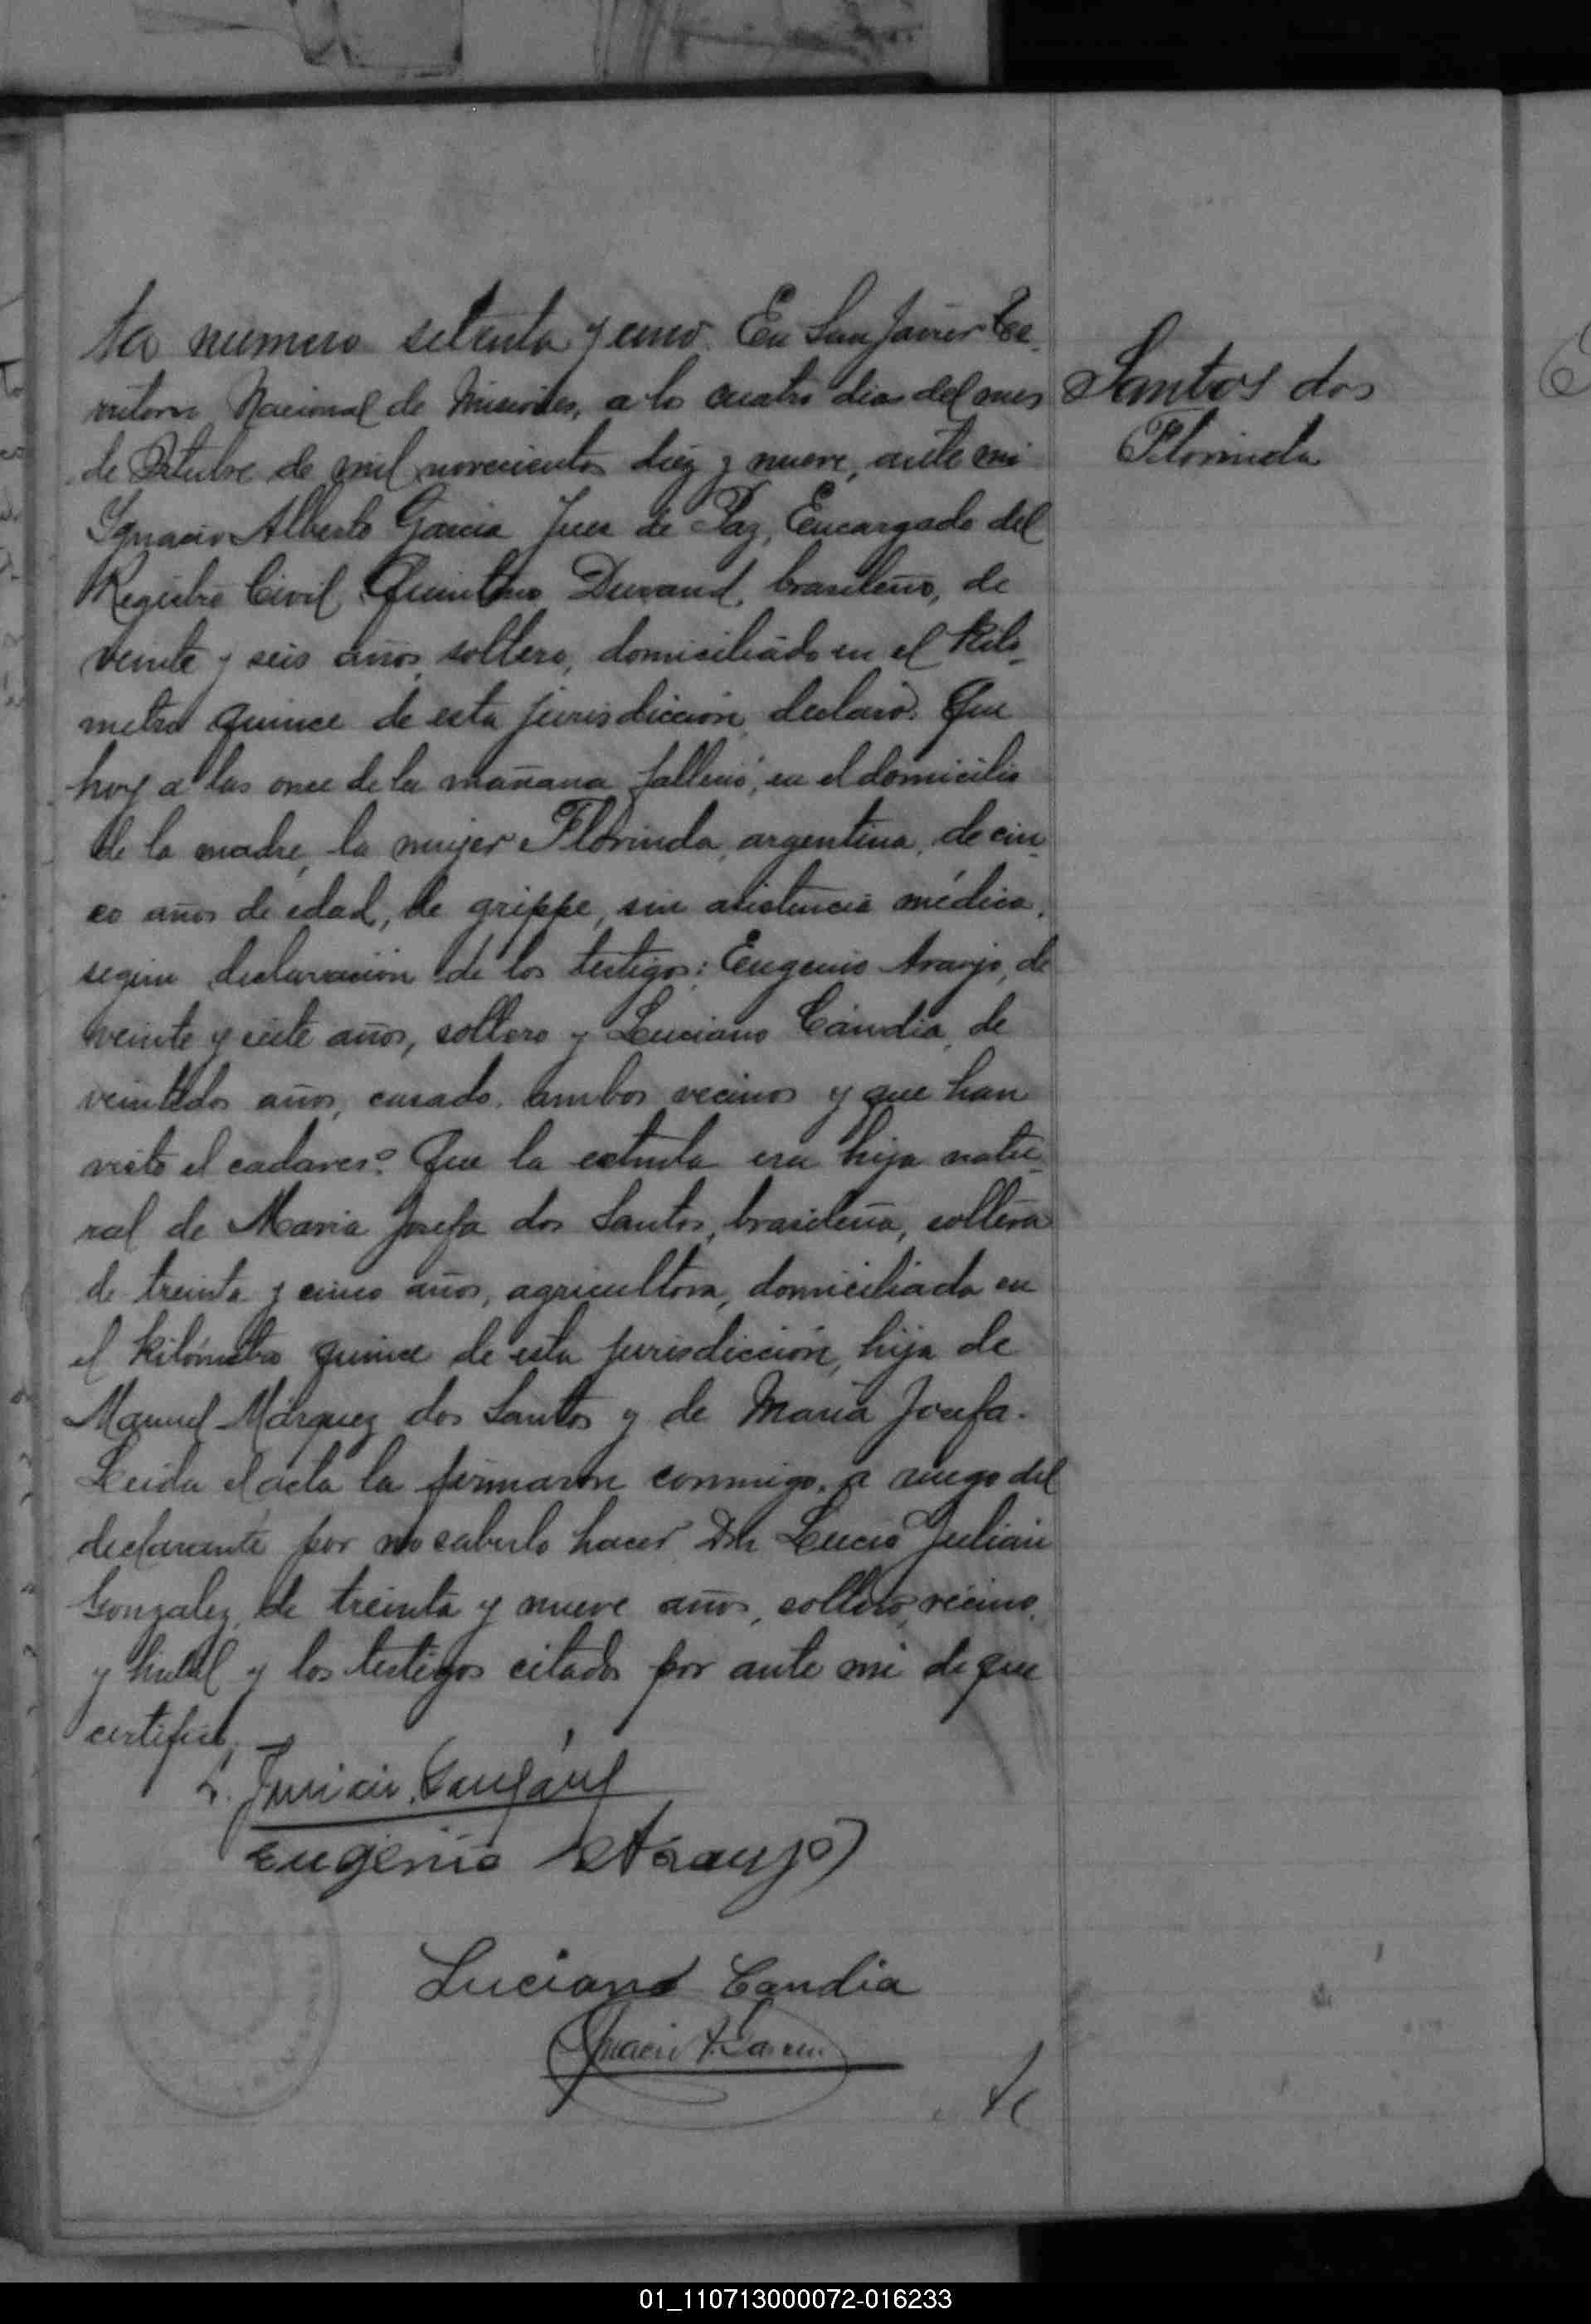 ta numero setenta y uno. En San Javier Te-
rritorio Nacional de Misiones, a los cuatro dias del mes
de Octubre de mil novecientos diez y nueve, ante mi
Ygnacio Alberto Garcia Juez de Paz, Encargado del
Registro Civil, Durand, brasileño, de
veinte y seis años, soltero, domiciliado en el Kilo-
metro quince de esta jurisdicción, declaró: Que
hoy a las once de la mañana falleció, en el domicilio
de la madre, la mujer Florinda, argentina, de cin-
co años de edad, de grippe, sin asistencia médica,
segun declaración de los testigos: Eugenio Araujo, de
veinte y siete años, soltero y Luciano Cándia, de
veintidos años, casado, ambos vecinos y que han
visto el cadaver: Que la extinta era hija natu-
ral de Maria Josefa dos Santos, brasileña, soltera
de treinta y cinco años, agricultora, domiciliada en
el kilómetro quince de esta jurisdicción, hija de
Manuel Márquez dos Santos y de Maria Josefa.
Leida el acta la firmaron conmigo, a ruego del
declarante por no saberlo hacer Dn Lucio Julian
Gonzalez, de treinta y nueve años, soltero, vecino,
y habil y los testigos citados por ante mi de que
certifico,
Eugenio Araujo
Luciano Candia
Ignacio A. Garcia
Santos dos
Florinda
01_110713000072-016233